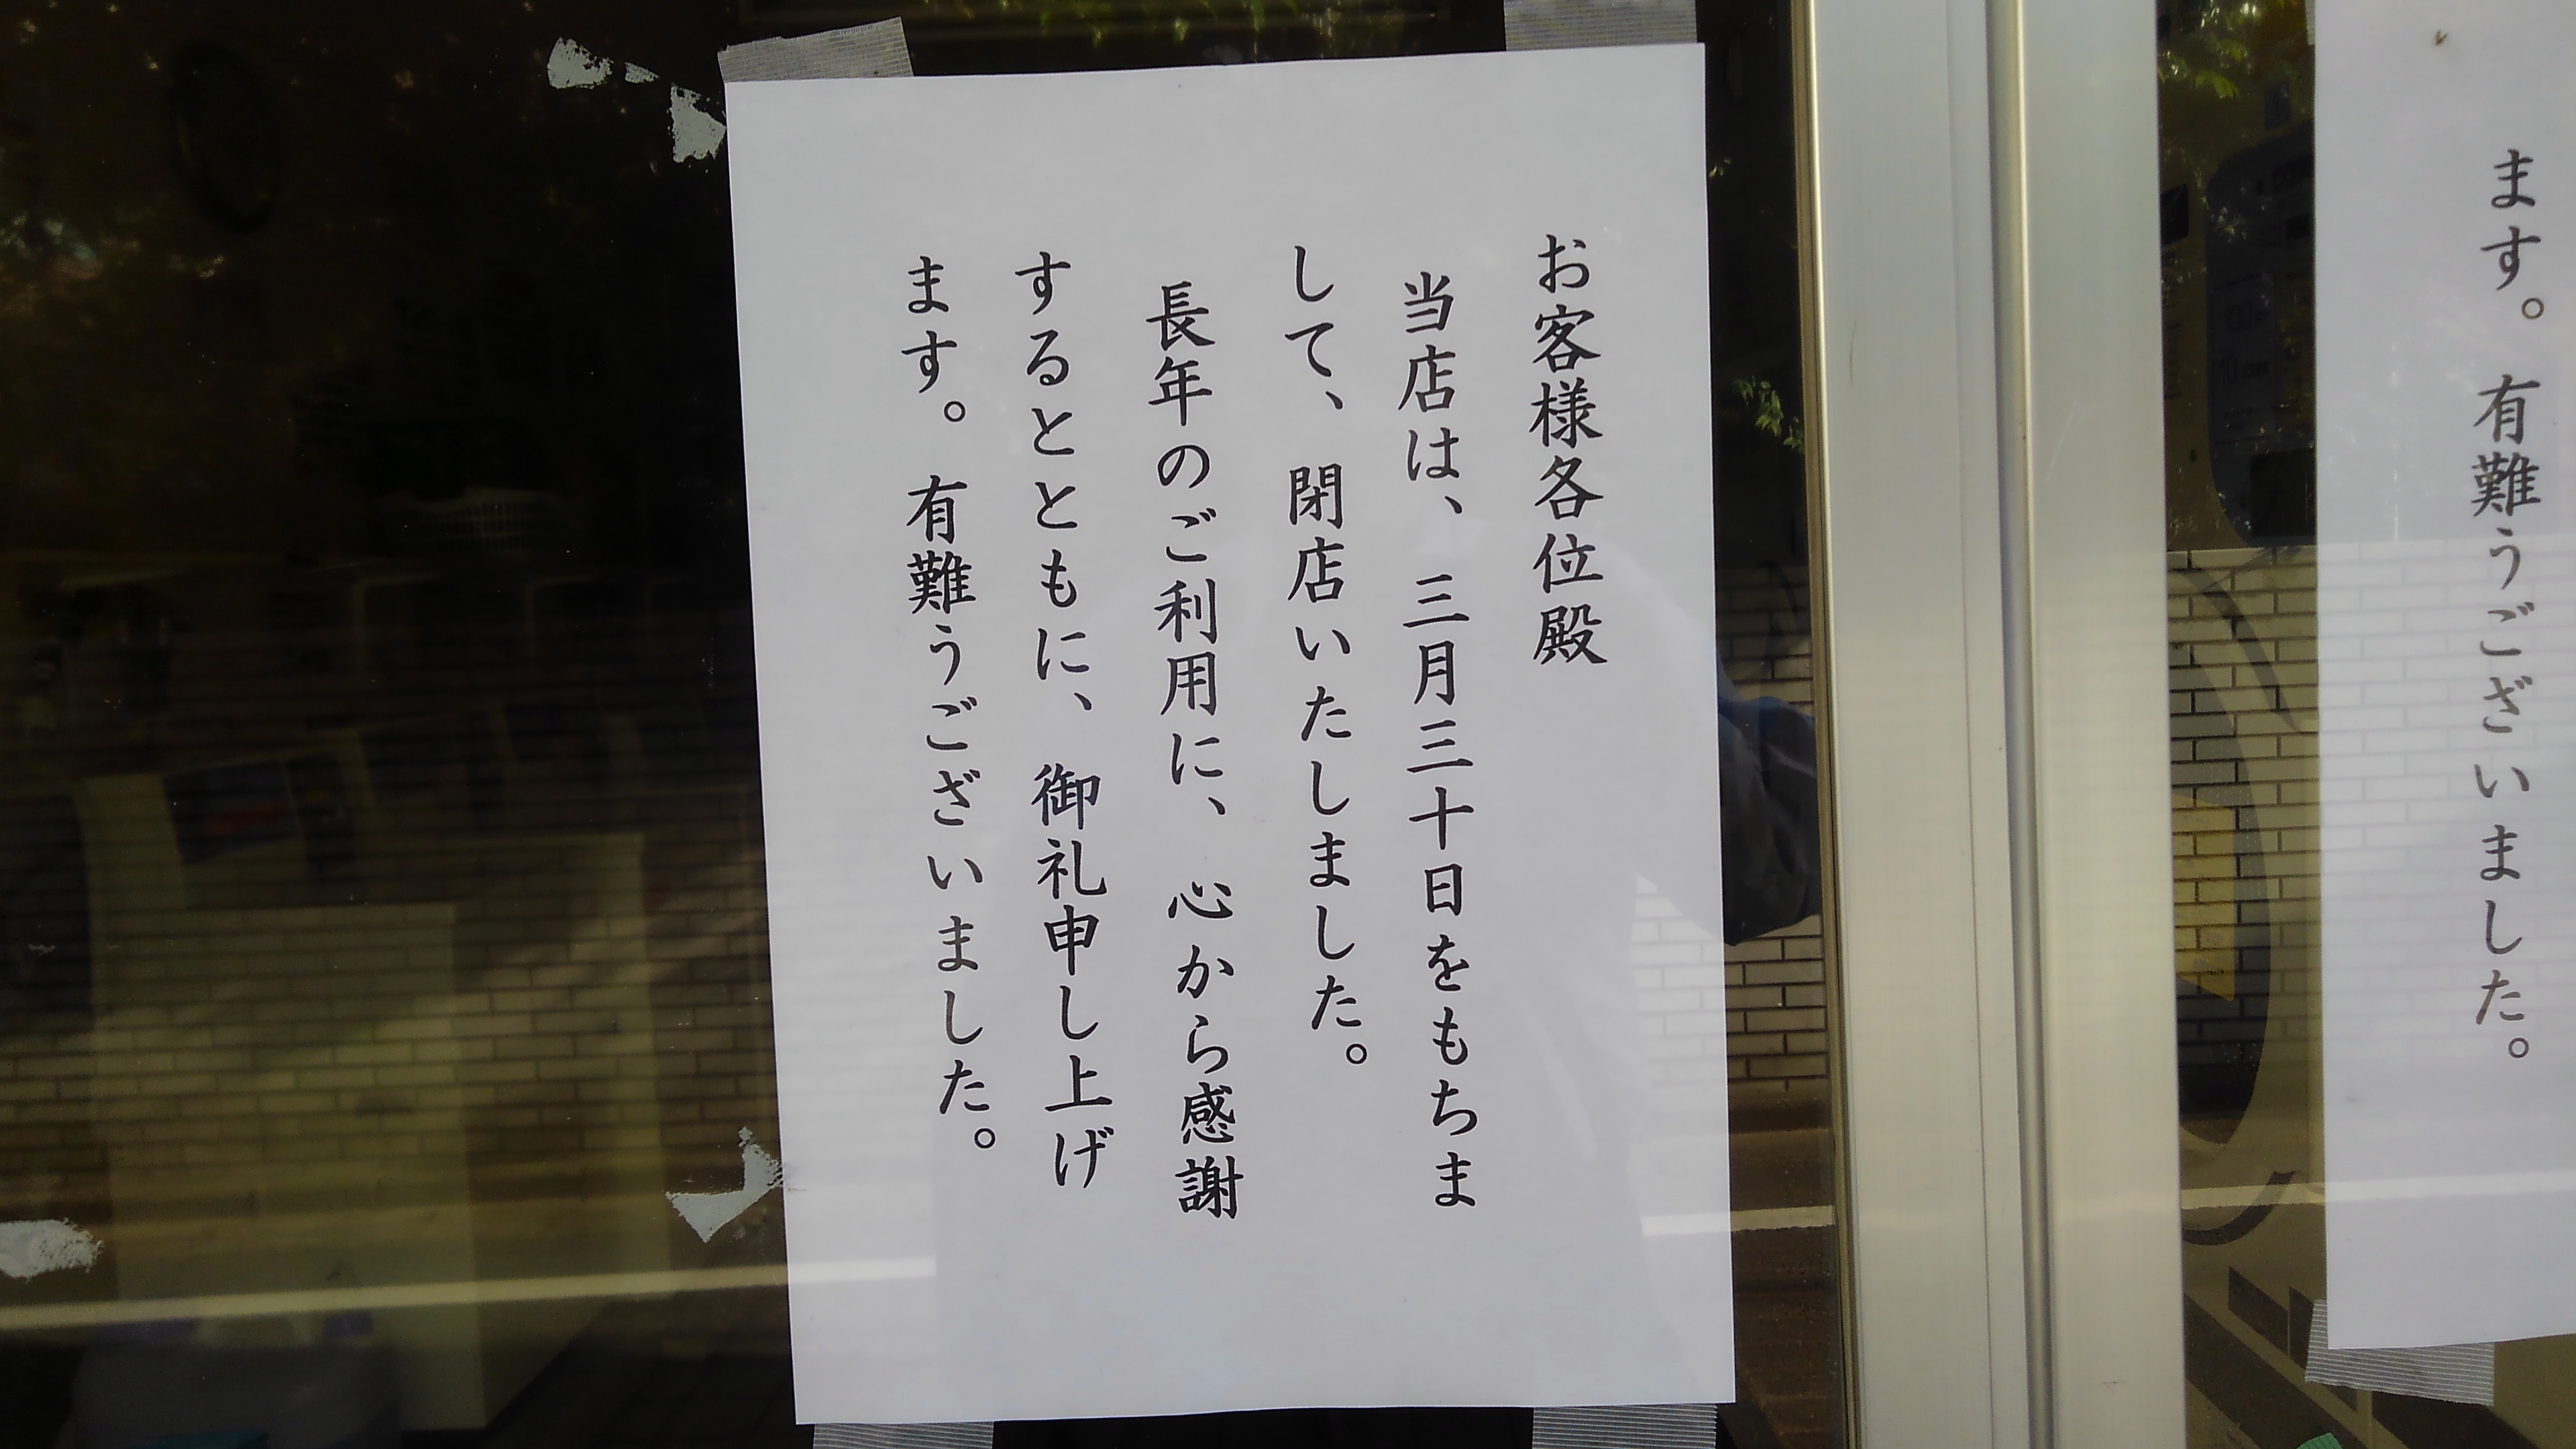 お客様各位殿
当店は、三月三十日をもちま
して、閉店いたしました。
長年のご利用に、心から感謝
するとともに、御礼申し上げ
ます。有難うございました。
ます。有難うございました。